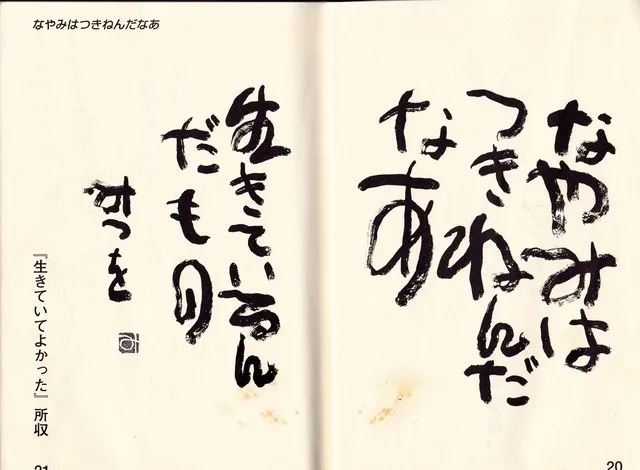 なやみは
つきねんだ
なあ
20
なやみはつきねんだなあ
生きているん
だもの
みつを
み
『生きていてよかった』所収
21